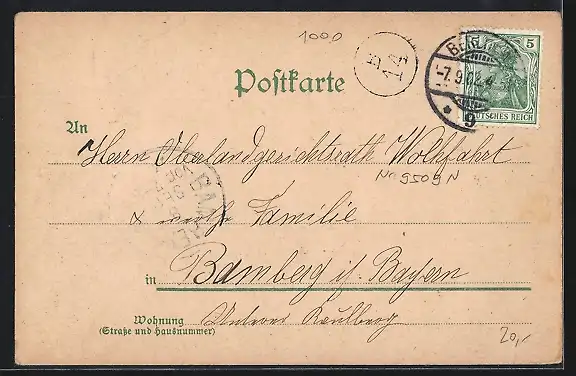 1000
B
14
BERLIN
-7.9.02. 4-
* 9
5 5
DEUTSCHES REICH
Postkarte
An
Herrn Oberlandgerichtsrath Wohlfahrt
N° 9509 N
& werthe Familie
in Bamberg i/ Bayern
Wohnung Unterer Kaulberg
(Straße und Hausnummer)
20,-